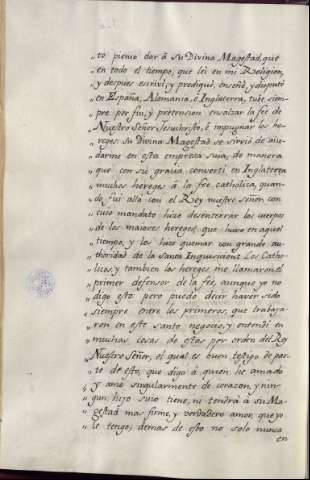 „to pienso dar â su Divina Magestad, que
„en todo el tiempo, que lei en mi Rreligion,
„y despues escriví, y prediqué, enseñé, y disputé
„en España, Alemania, ê Inglaterra, tube siem-
„pre por fin, y pretension ensalzar la fee de
„Nuestro Señor Jesuchristo, ê impugnar los he-
„reges. Su Divina Magestad se sirvió de aiu-
„darme en esta empresa suia, de manera
„que con su gracia convertí en Inglaterra
„muchos hereges â la fee catholica, quan-
„do fui allá con el Rey nuestro señor con
„cuio mandato hize desenterrar los cuerpos
„de los maiores hereges, que huvo en aquel
„tiempo, y los hize quemar con grande au-
„thoridad de la Santa Inquisicion. Los Catho-
„licos, y tambien los hereges me llamaron el
„primer defensor de la fee, aunque yo no
„digo esto; pero puedo decir haver sido
„siempre entre los primeros, que trabaja-
„ron en este santo negocio, y entendi en
„muchas cosas de estas por orden del Rey
„Nuestro Señor, el qual es buen testigo de par-
„te de esto, que digo â quien he amado
„y amo singularmente de corazon, y nin-
„gun hijo suio tiene, ni tendrá â su Ma-
„gestad mas firme, y verdadero amor, que yo
„le tengo; demas de esto no solo nunca
en